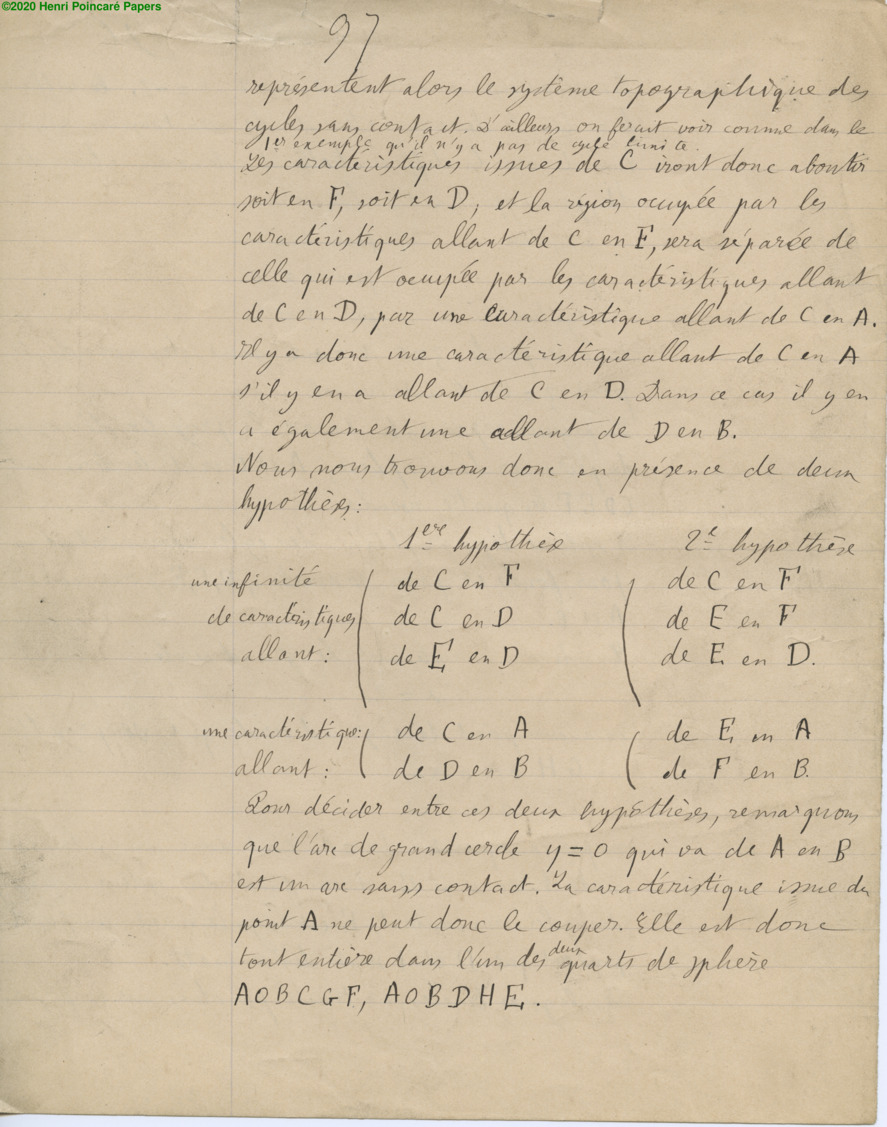 ©2020 Henri Poincaré Papers
97
représentent alors le système topographique des
cycles sans contact. D'ailleurs on ferait voir comme dans le
1er exemple qu'il n'y a pas de cycle limite.
Les caractéristiques issues de C iront donc aboutir
soit en F, soit en D; et la région occupée par les
caractéristiques allant de C en F, sera séparée de
celle qui est occupée par les caractéristiques allant
de C en D, par une caractéristique allant de C en A.
Il y a donc une caractéristique allant de C en A
s'il y en a allant de C en D. Dans ce cas il y en
a également une allant de D en B.
Nous nous trouvons donc en présence de deux
hypothèses:
1ère hypothèse 2e hypothèse
une infinité de C en F de C en F
de caractéristiques de C en D de E en F
allant: de E en D de E en D.
une caractéristique: de C en A de E en A
allant: de D en B de F en B.
Pour décider entre ces deux hypothèses, remarquons
que l'arc de grand cercle y = 0 qui va de A en B
est un arc sans contact. La caractéristique issue du
point A ne peut donc le couper. Elle est donc
tout entière dans l'un des deux quarts de sphère
AOBCGF, AOBDHE.